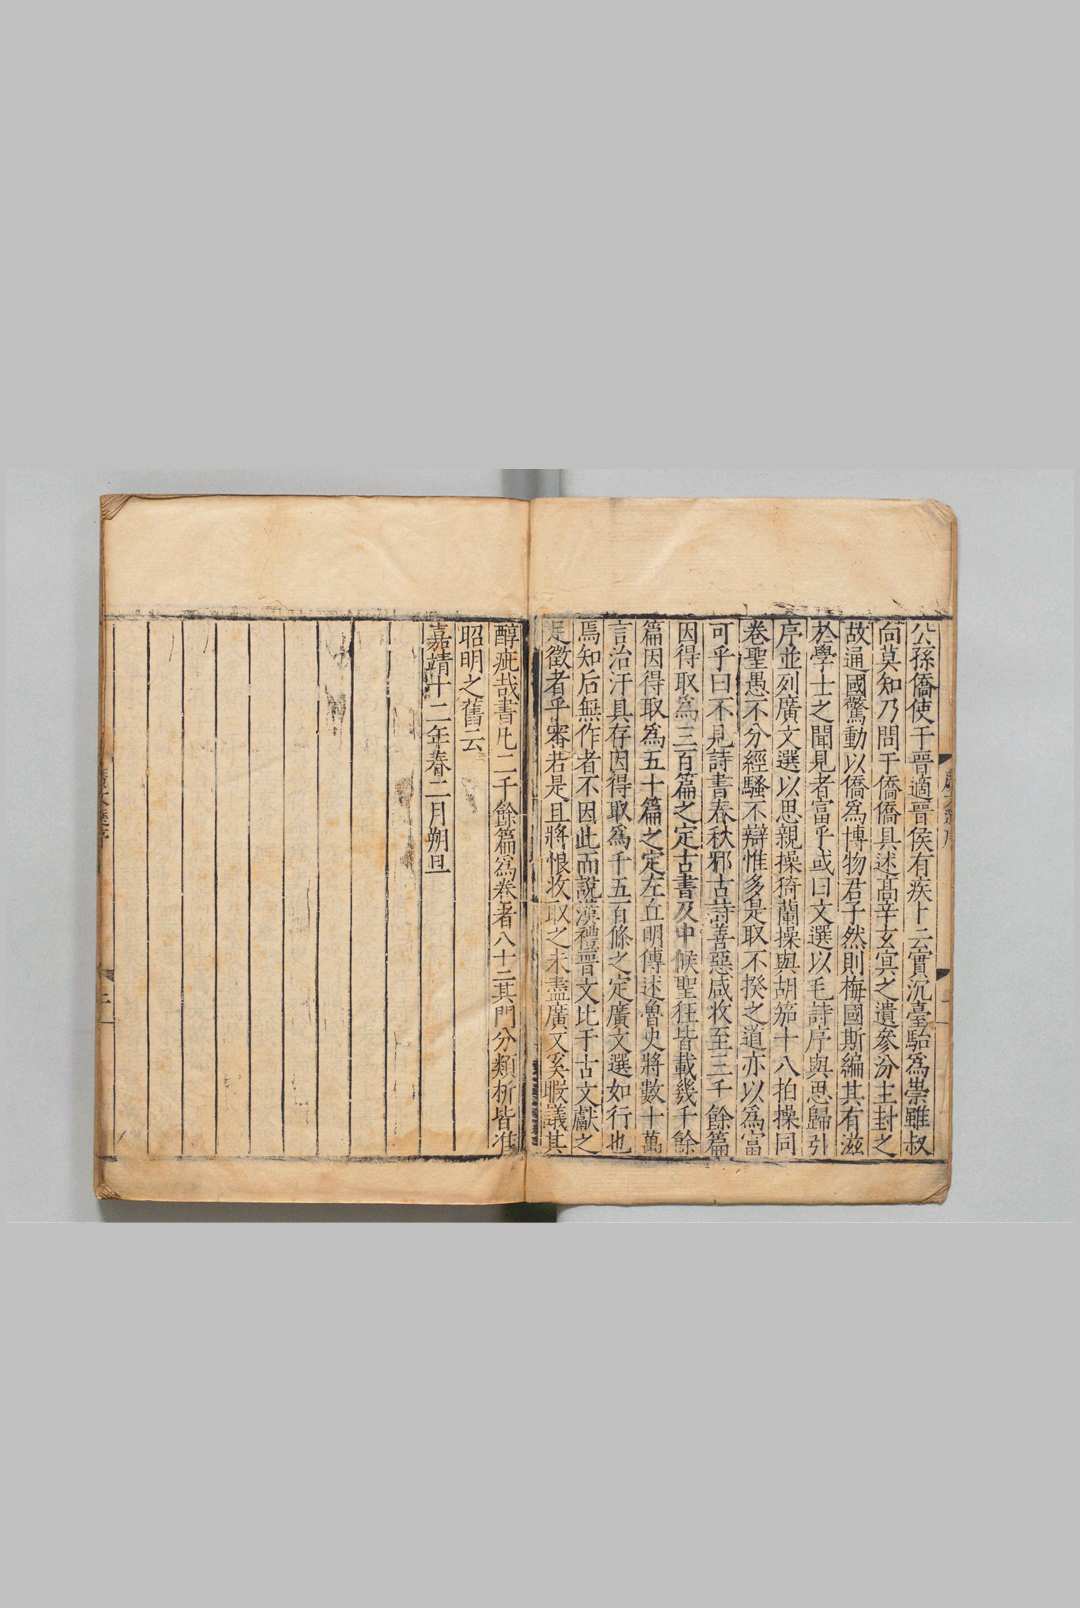 公孫僑使于晉適晉侯有疾卜云實沉臺駘為祟雖叔
向莫知乃問于僑僑具述高辛玄冥之遺參汾主封之
故逼國驚動以僑為博物君子然則梅國斯編其有滋
於學士之聞見者富乎或曰文選以毛詩序與思歸引
序並列廣文選以思親操猗蘭操與胡笳十八拍操同
卷聖愚不分經騷不辯惟多是取不揆之道亦以為富
可乎曰不見詩書春秋邪古詩善惡咸收至三千餘篇
因得取為三百篇之定古書及中候聖狂皆載幾千餘
篇因得取為五十篇之定左丘明傳述魯史將數十萬
言治汙具存因得取為千五百條之定廣文選如行也
焉知后無作者不因此而說漢禮晉文比于古文獻之
足徵者乎審若是且將恨收取之未盡廣文奚暇議其
醇疵哉書凡二千餘篇為卷者八十二其門分類析皆准
昭明之舊云
嘉靖十二年春二月朔旦